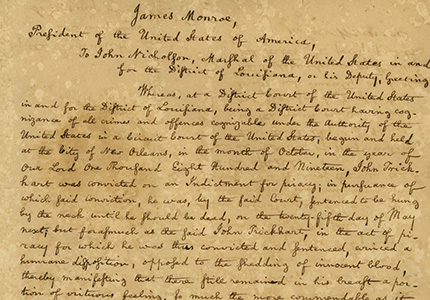 James Monroe,
President of the United States of America,
To John Nicholson, Marshal of the United States in and
for the District of Louisiana, or his Deputy, Greeting
Whereas, at a District Court of the United States
in and for the District of Louisiana, being a District Court having cog-
nizance of all crimes and offences cognizable under the authority of the
United States in a Circuit Court of the United States, begun and held
at the City of New Orleans, in the month of October, in the year of
Our Lord One Thousand Eight Hundred and Nineteen, John Trick-
hart was convicted on an Indictment for piracy, in pursuance of
which said conviction, he was, by the said Court, sentenced to be hung
by the neck until he should be dead, on the twenty-fifth day of May
next; but forasmuch as the said John Trickhart, in the act of pi-
racy for which he was thus convicted and sentenced, evinced a
humane disposition, opposed to the shedding of innocent blood,
thereby manifesting that there still remained in his breast a por-
tion of virtuous feeling, so much the more commendable as it